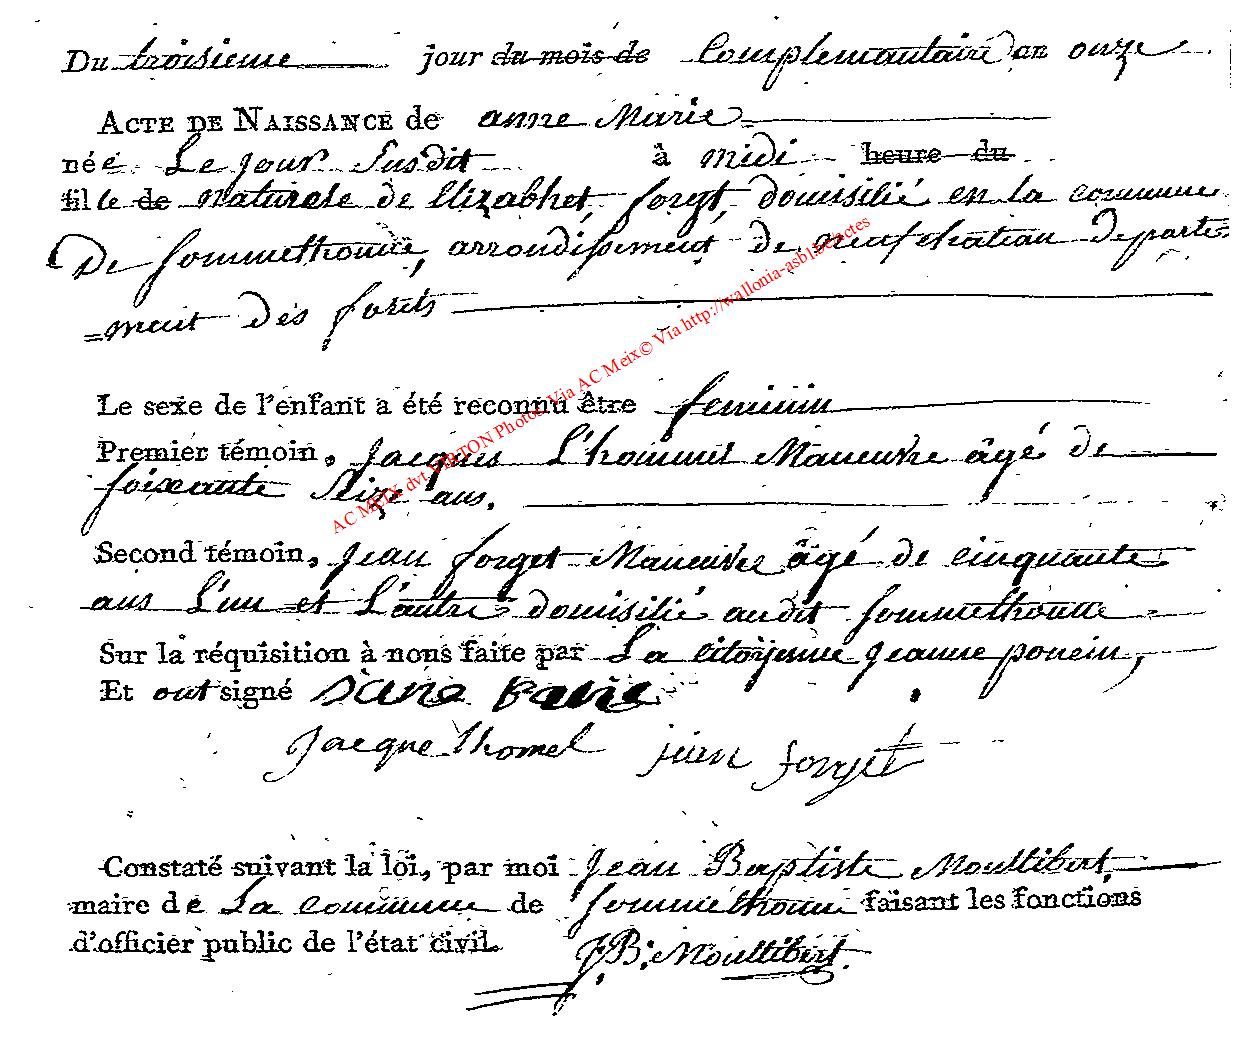 Du troisieme jour du mois de Complemantaire an onze
ACTE DE NAISSANCE de anne Marie
née Le jour Susdit à midi heure du
fille de naturele de Elizabhet forget, domisilié en la commune
De Sommethonne, arrondissement de neufchateau departe=
=ment des forêts
Le sexe de l'enfant a été reconnu être feminin
Premier témoin, Jacques L'hommel Maneuvre âgé de
soixante Seize ans.
Second témoin, Jean forget Maneuvre âgé de cinquante
ans L'un et L'autre domisilié audit Sommethonne
Sur la réquisition à nous faite par La citoyenne jeanne poncin,
Et ont signé
Jacque lhomel jean forget
Constaté suivant la loi, par moi Jean Baptiste Moultibert,
maire de La commune de Sommethonne faisant les fonctions
d'officier public de l'état civil.
J.B: Moultibert.
AC MEIX dvt VIRTON Photos Via AC Meix© Via http://wallonia-asbl.be/actes